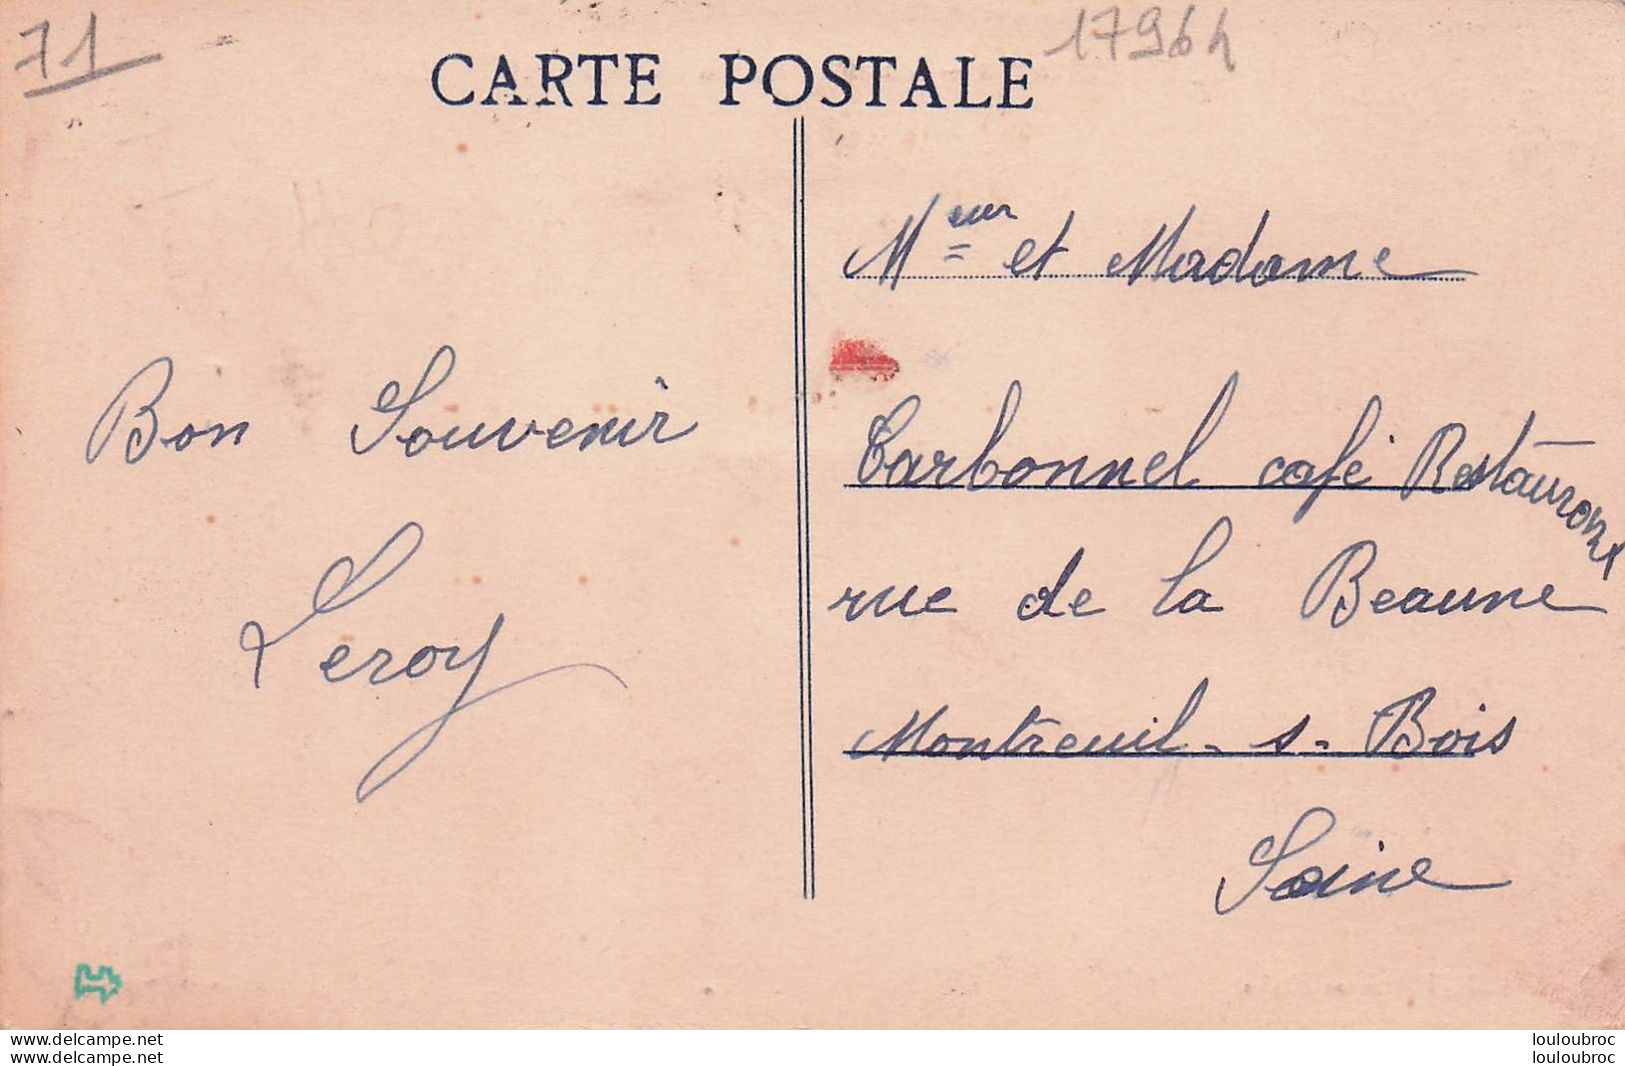 71
17964
CARTE POSTALE
Bon Souvenir
Leroy
Meur et Madame
Carbonnel café Restaurant
rue de la Beaune
Montreuil - s - Bois
Seine
www.delcampe.net
www.delcampe.net
louloubroc
louloubroc